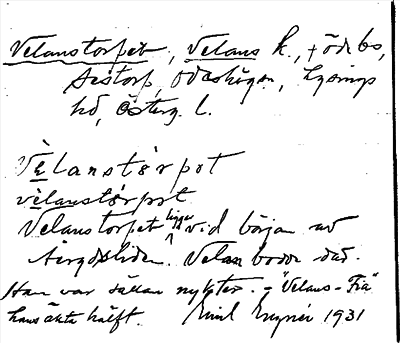 Velanstorpet, Velans k., + öde bs,
Sestorp, Ödeshögen, Lysings
hd, Österg. l.
Vèlanstórpot
vèlanstórpot
Velanstorpet ligger vid början av
Velan bodde där.
Han var sällan nykter. - "Velans-Fia"
hans äkta hälft. Emil 1931